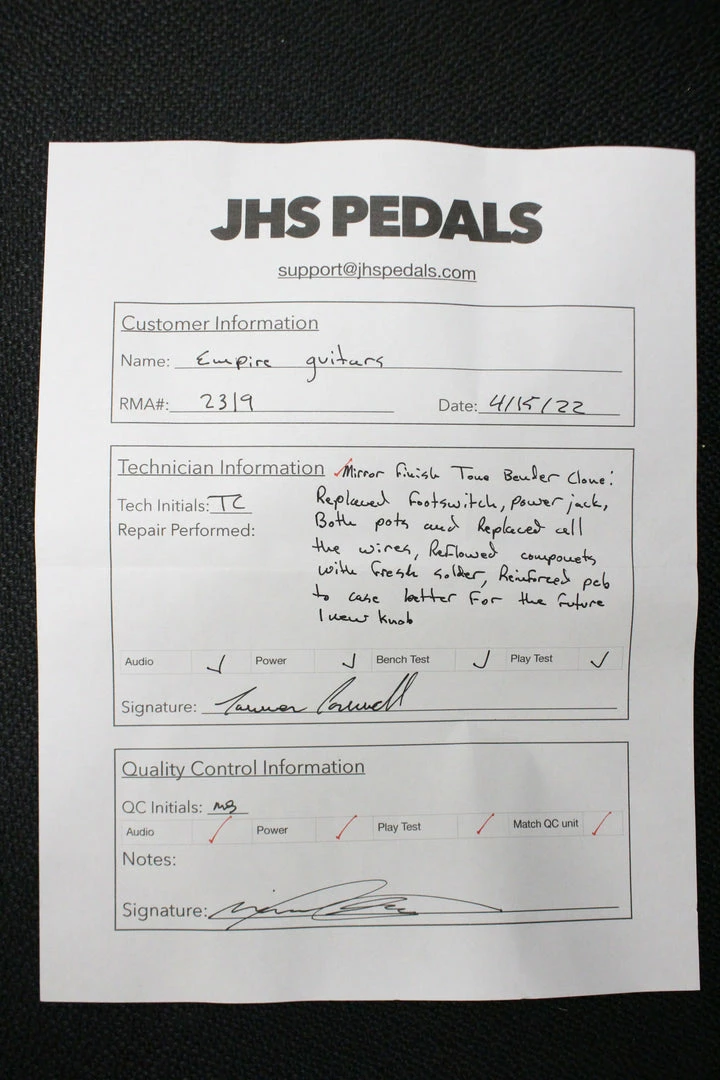 JHS PEDALS
support@jhspedals.com
Customer Information
Name: Empire guitars
RMA#: 2319 Date: 4/15/22
Technician Information Mirror Finish Tone Bender Clone:
Tech Initials: TC Replaced Footswitch, power jack,
Repair Performed: Both pots and Replaced all
the wires, Reflowed componets
with fresh solder, Reinforced pcb
to case better for the future
1 new knob
Audio ✓ Power ✓ Bench Test ✓ Play Test ✓
Signature:
Quality Control Information
QC Initials:
Audio ✓ Power ✓ Play Test ✓ Match QC unit ✓
Notes:
Signature: